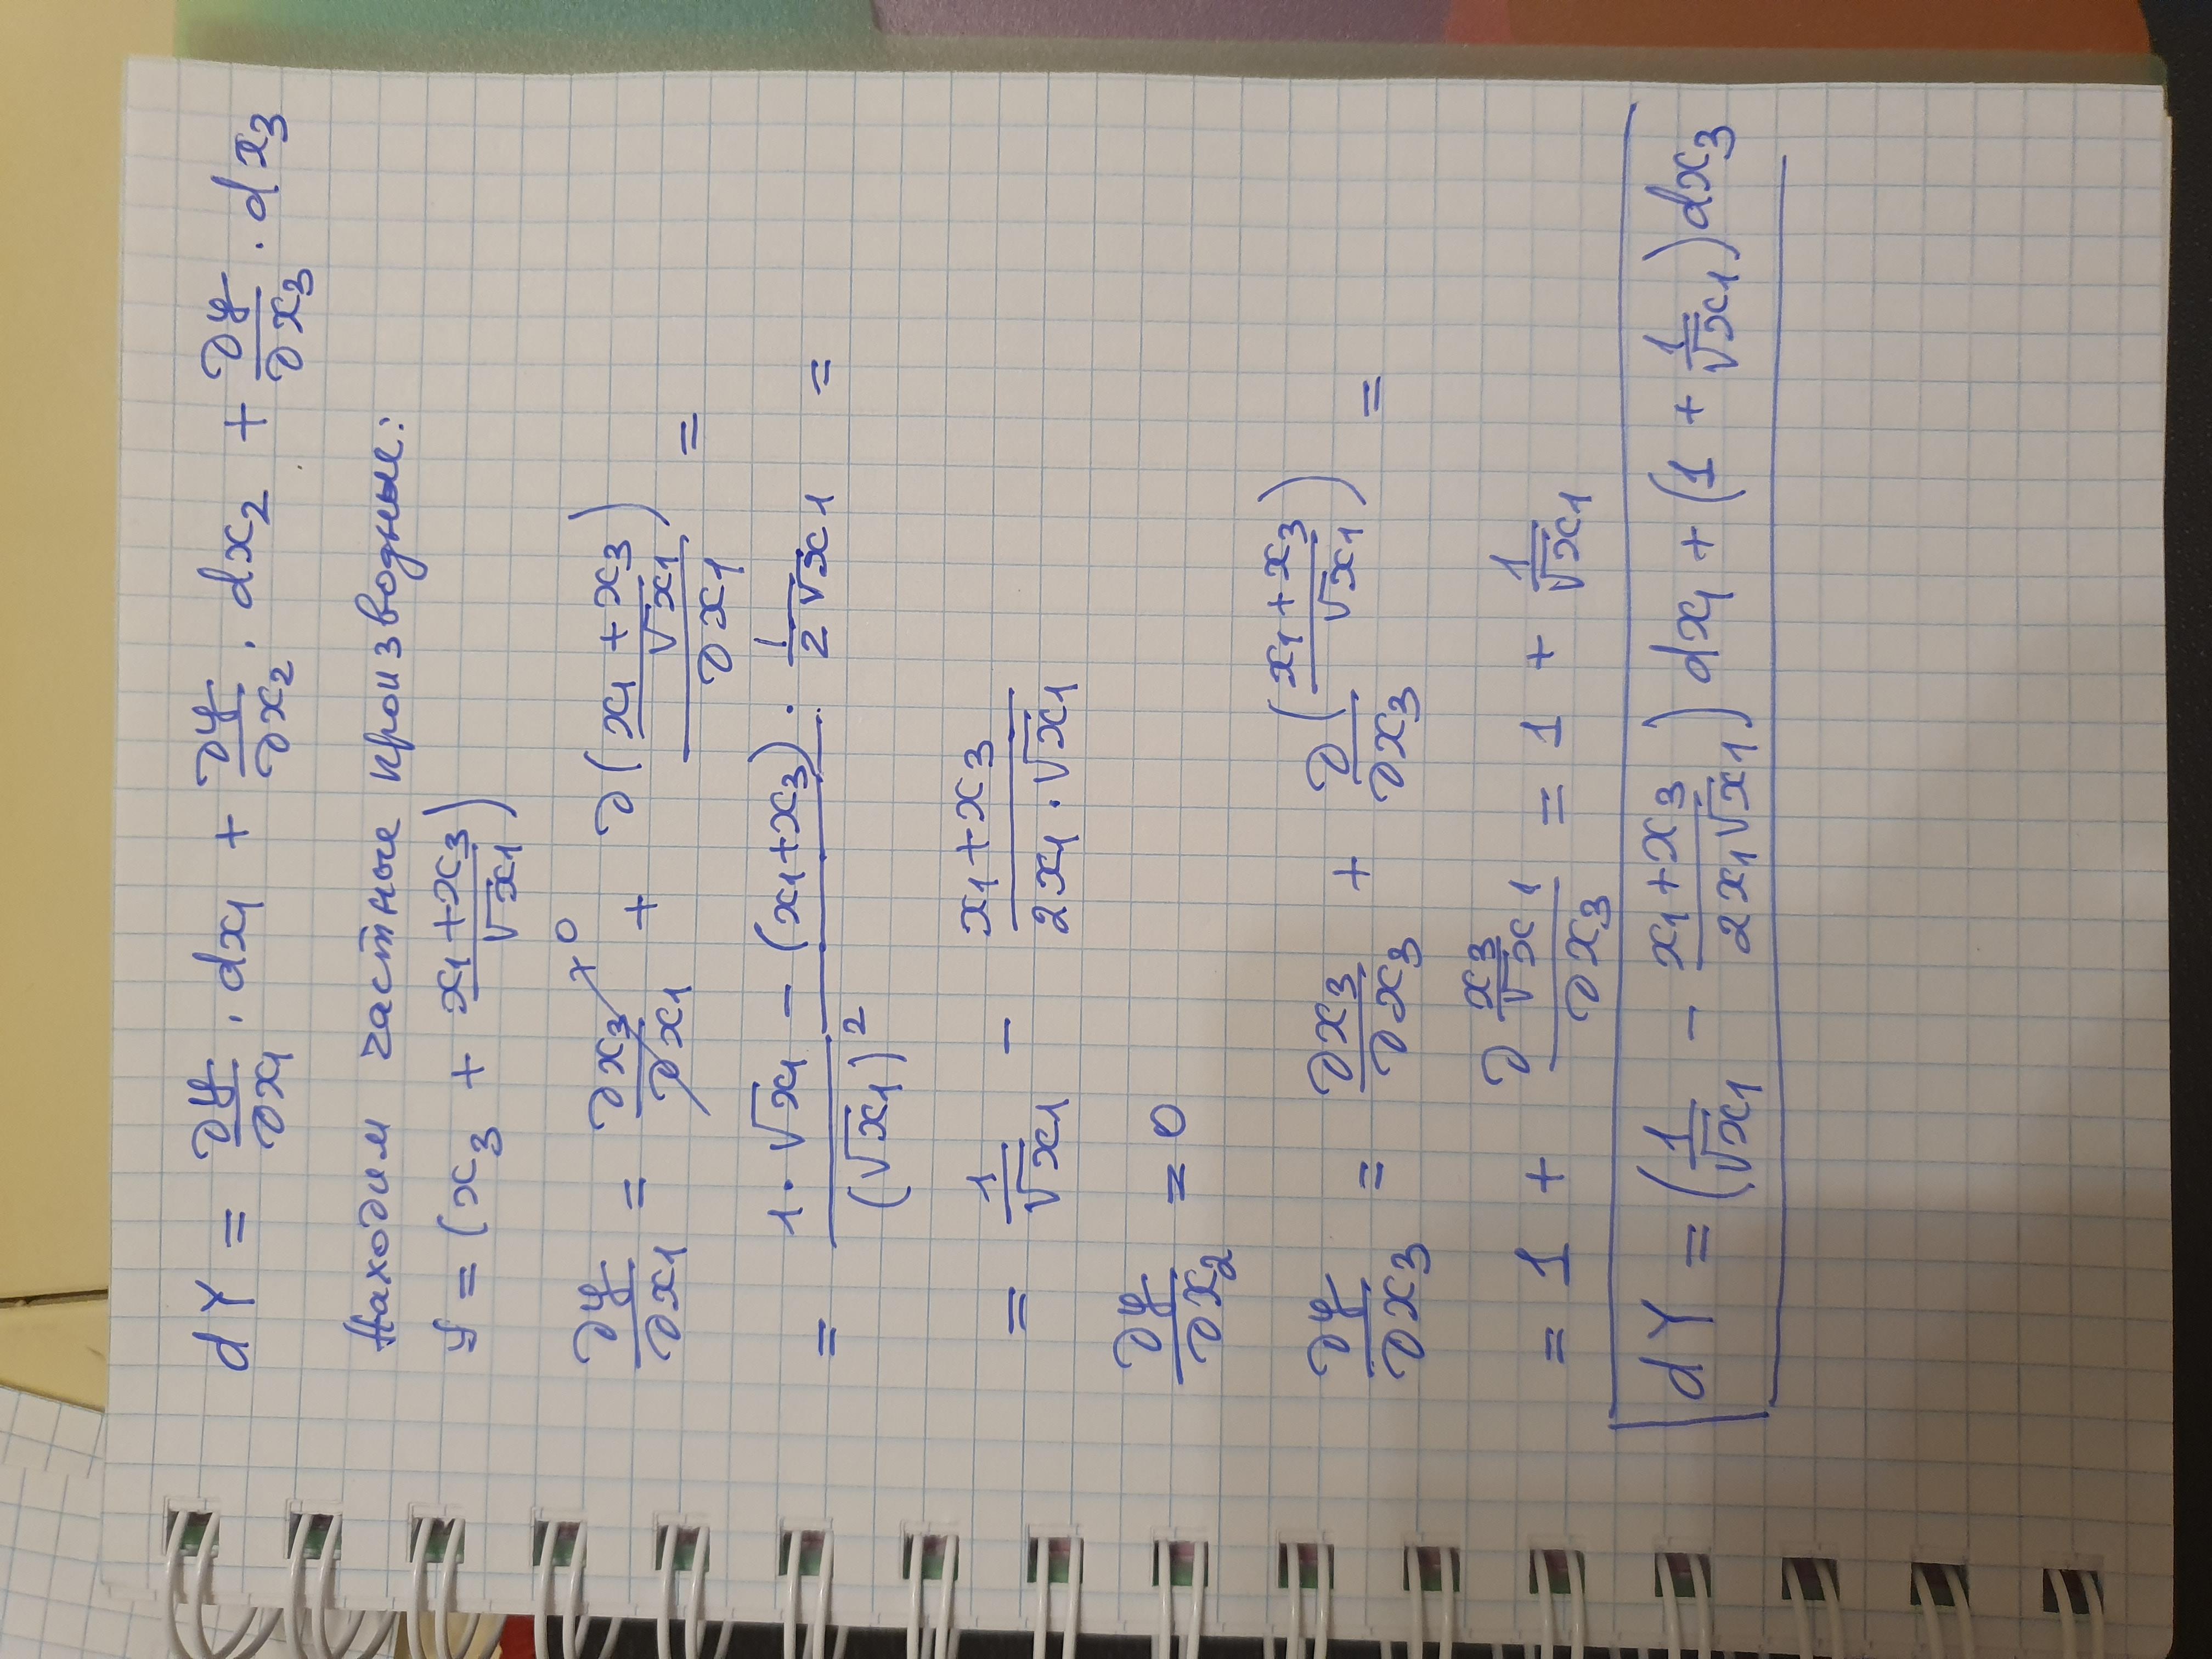 dY = ∂y/∂x₁ · dx₁ + ∂y/∂x₂ · dx₂ + ∂y/∂x₃ · dx₃
Находим частные производные:
y = (x₃ + (x₁+x₃)/√x₁)
∂y/∂x₁ = ∂x₃/∂x₁ → 0 + ∂((x₁+x₃)/√x₁)/∂x₁ =
= (1·√x₁ − (x₁+x₃) · 1/(2√x₁))/(√x₁)² =
= 1/√x₁ − (x₁+x₃)/(2x₁·√x₁)
∂y/∂x₂ = 0
∂y/∂x₃ = ∂x₃/∂x₃ + ∂/∂x₃ ((x₁+x₃)/√x₁) =
= 1 + ∂(x₃/√x₁)/∂x₃ = 1 + 1/√x₁
dY = (1/√x₁ − (x₁+x₃)/(2x₁√x₁)) dx₁ + (1 + 1/√x₁) dx₃